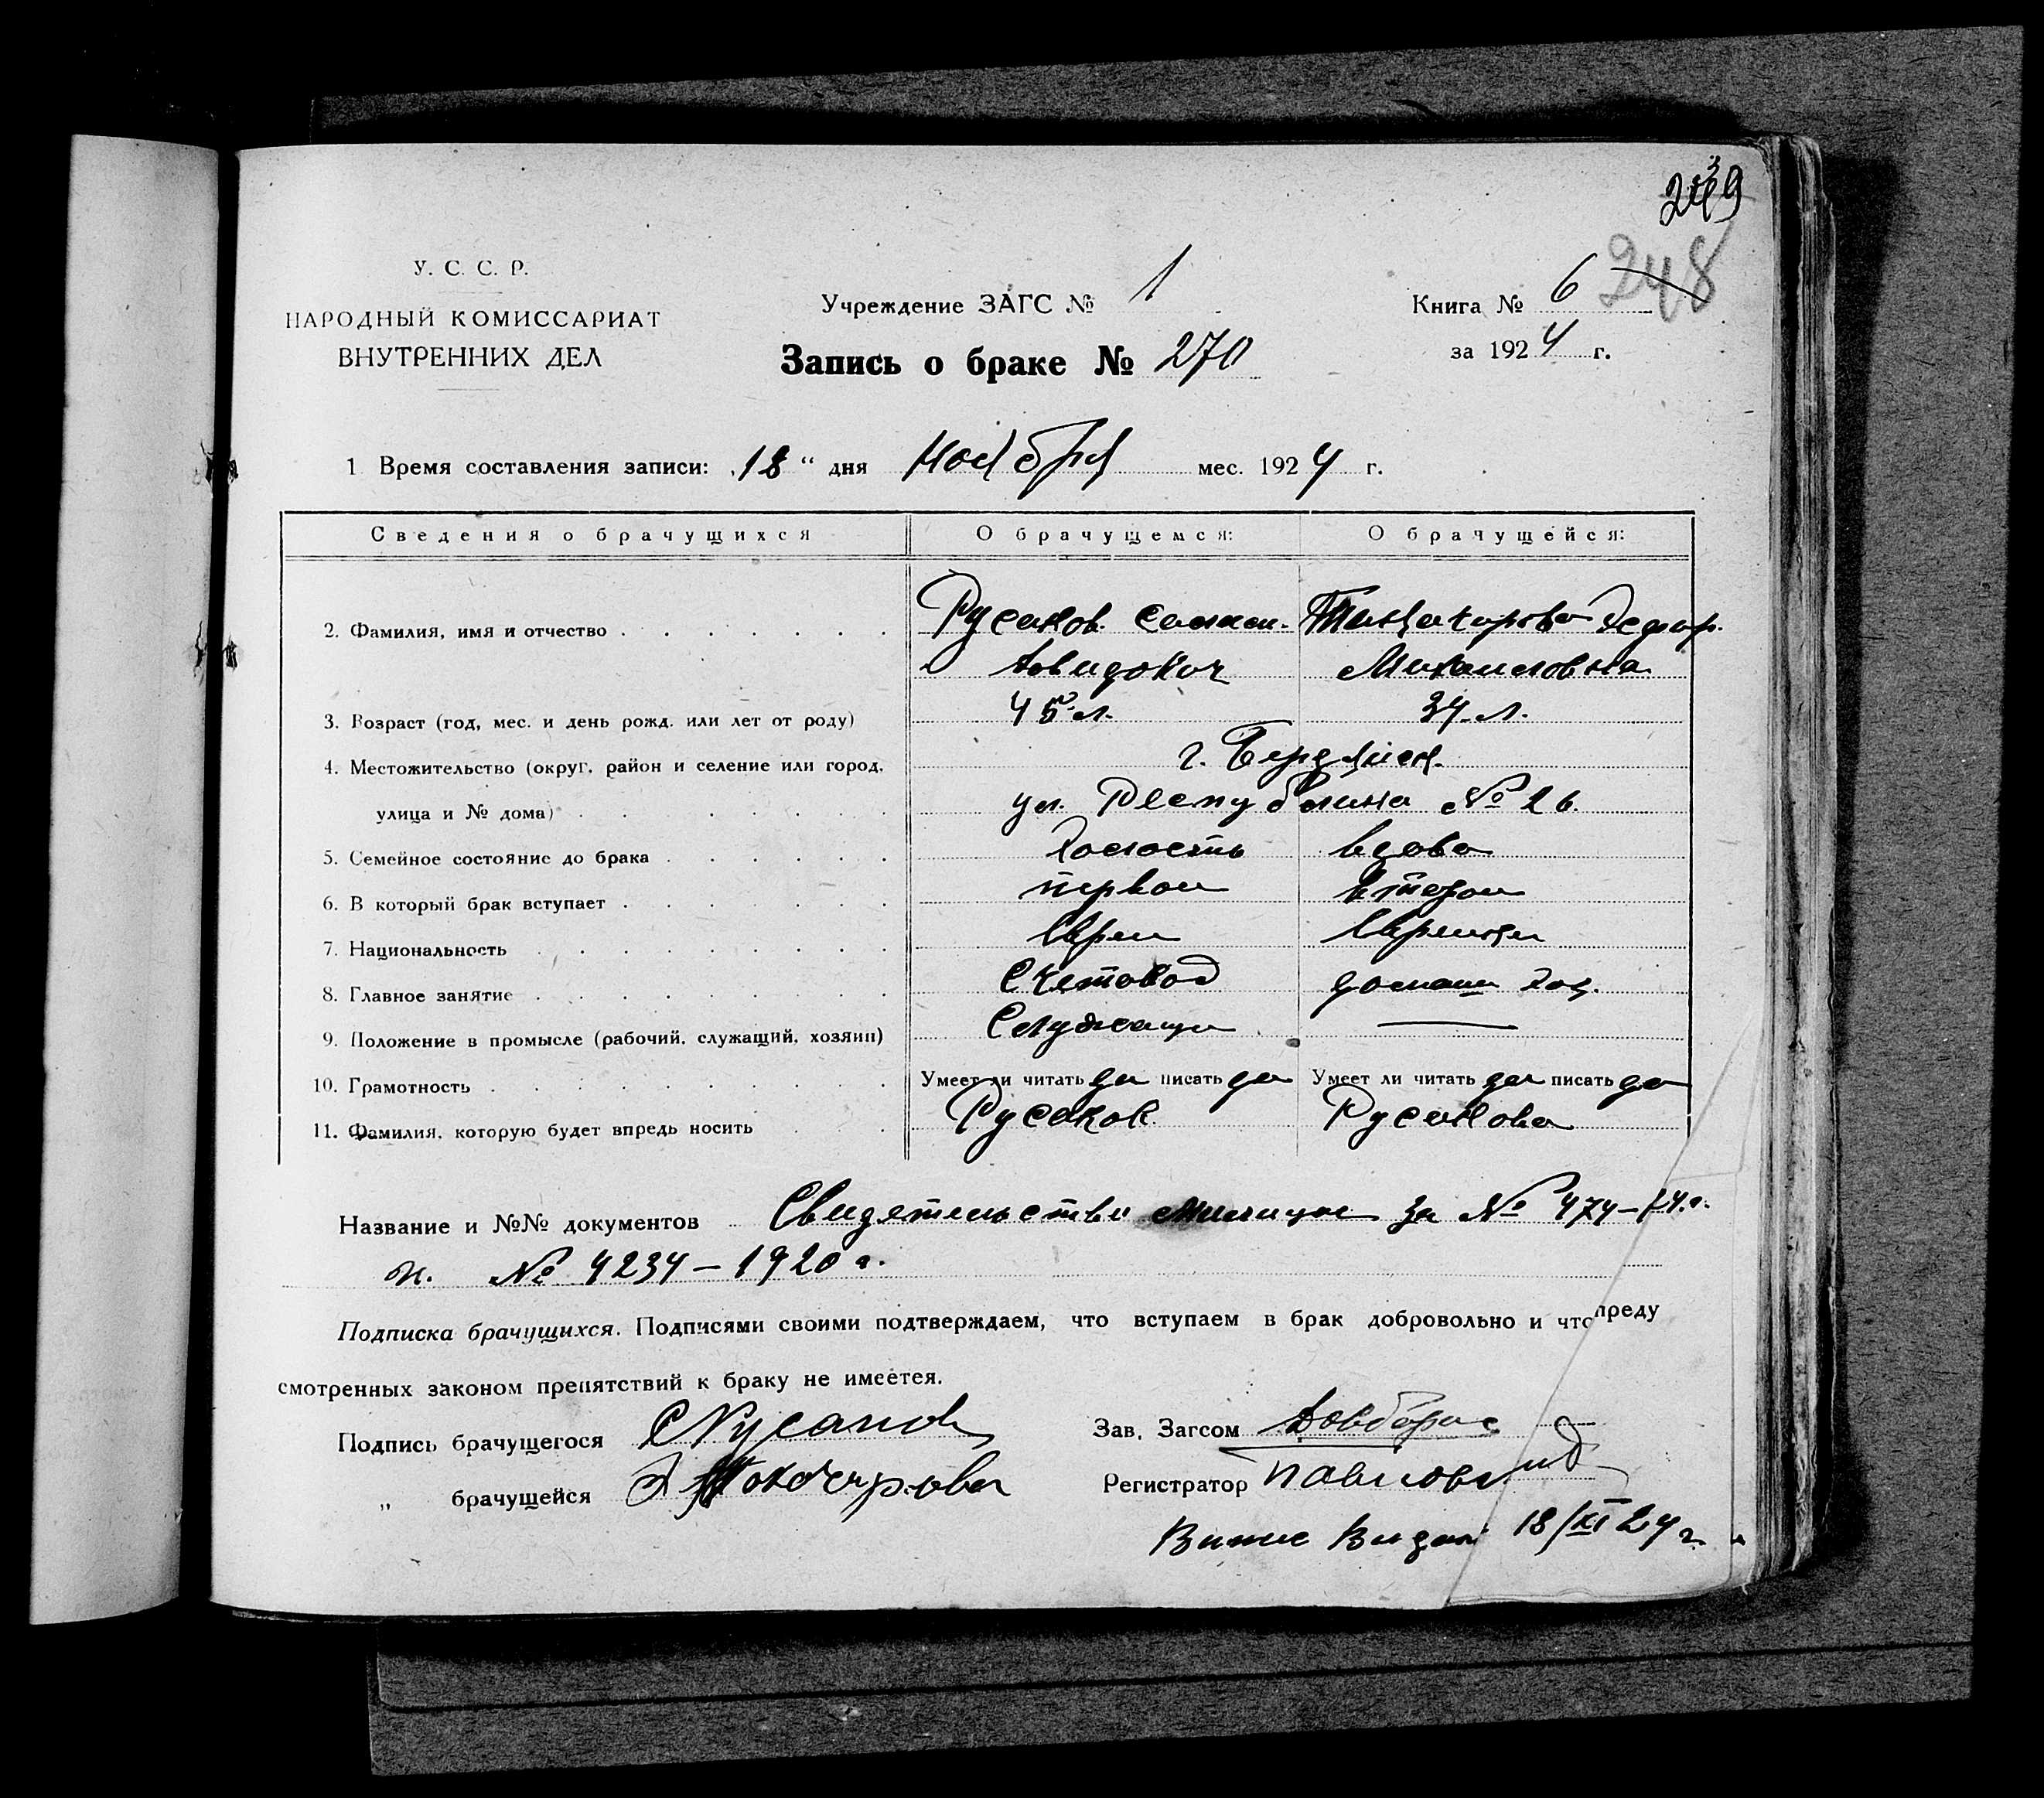 239
248
У. С. С. Р.
НАРОДНЫЙ КОМИССАРИАТ
ВНУТРЕННИХ ДЕЛ
Учреждение ЗАГС № 1
Книга № 6
Запись о браке № 270
за 1924 г.
1 Время составления записи: „18“ дня Ноября мес. 1924 г.
Сведения о брачущихся О брачущемся: О брачущейся:
2. Фамилия, имя и отчество Русаков
Давидович Михаиловна
3. Возраст (год, мес. и день рожд. или лет от роду) 45 л. 34 л.
4. Местожительство (округ, район и селение или город, г. Бердянск
улица и № дома) ул. Республики № 26.
5. Семейное состояние до брака Холость вдова
6. В который брак вступает первои второи
7. Национальность Еврей Еврейка
8. Главное занятие Счетовод домаш хоз.
9. Положение в промысле (рабочий, служащий, хозяин) Служащи —
10. Грамотность Умеет ли читать да писать да Умеет ли читать да писать да
11. Фамилия, которую будет впредь носить Русаков Русакова
Название и №№ документов Свидетельстви милиции за № 474–24.г.
и. № 4234–1920 г.
Подписка брачущихся. Подписями своими подтверждаем, что вступаем в брак добровольно и что преду
смотренных законом препятствий к браку не имеется.
Подпись брачущегося СРусаков
Зав. Загсом
„ брачущейся
Регистратор
18/XI 24 г.